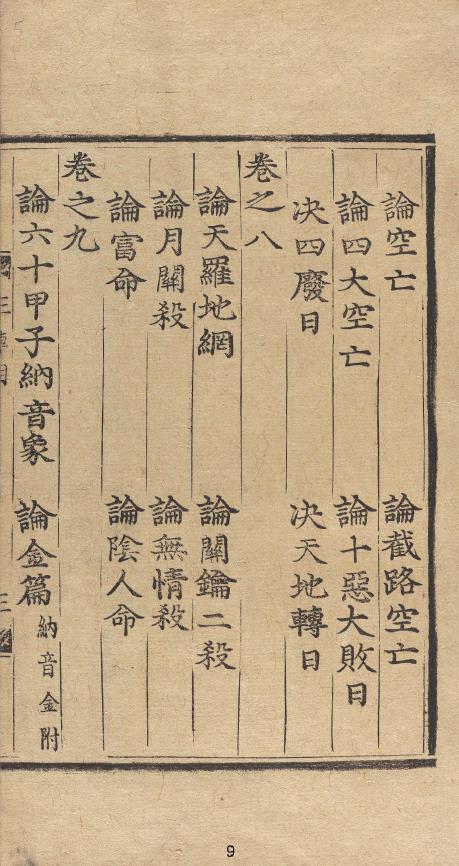 論空亡　論截路空亡
論四大空亡　論十惡大敗日
决四廢日　决天地轉日
卷之八
論天羅地網　論關鑰二殺
論月關殺　論無情殺
論富命　論陰人命
卷之九
論六十甲子納音象　論金篇納音金附
9